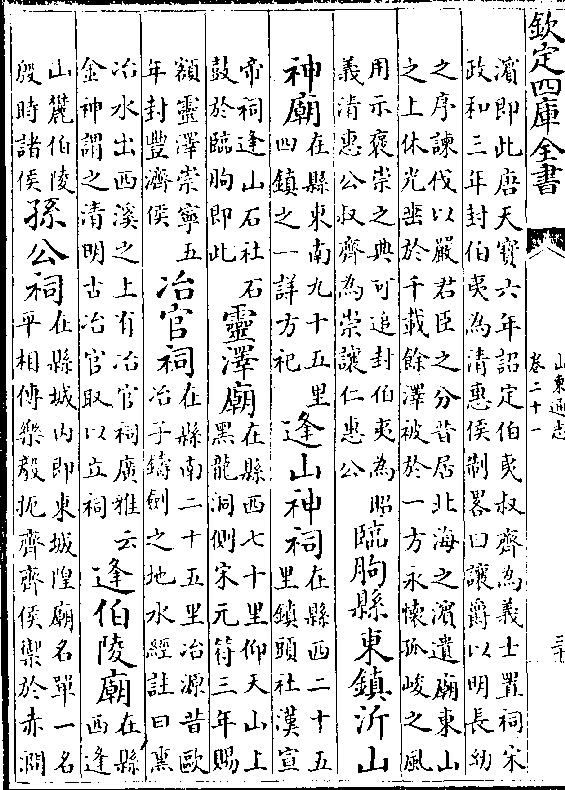 欽定四庫全書
山東通志
卷二十一
濵即此唐天寶六年詔定伯夷叔齊為義士置祠宋
政和三年封伯夷為清惠侯制畧曰讓爵以明長幼
之序諫伐以嚴君臣之分昔居北海之濵遺廟東山
之上休光垂於千載餘澤被於一方永懷孤峻之風
用示褒崇之典可追封伯夷為昭
義清惠公叔齊為崇讓仁惠公
臨朐縣東鎮沂山
神廟
在縣東南九十五里
四鎮之一詳方祀
逢山神祠
在縣西二十五
里鎮頭社漢宣
帝祠逢山石社石
鼓於臨朐即此
靈澤廟
在縣西七十里仰天山上
黑龍洞側宋元符三年賜
額靈澤崇寧五
年封豐濟侯
冶官祠
在縣南二十五里冶源昔歐
冶子鑄劍之地水經註曰熏
冶水出西溪之上有冶官祠廣雅云
金神謂之清明古冶官取以立祠
逢伯陵廟
在縣
西逢
山麓伯陵
殷時諸侯
孫公祠
在縣城内即東城隍廟名單一名
平相傳樂毅扼齊齊侯禦於赤澗